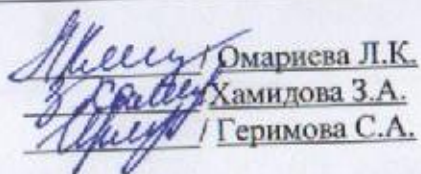 / Омариева Л.К.
Хамидова З.А.
/ Геримова С.А.